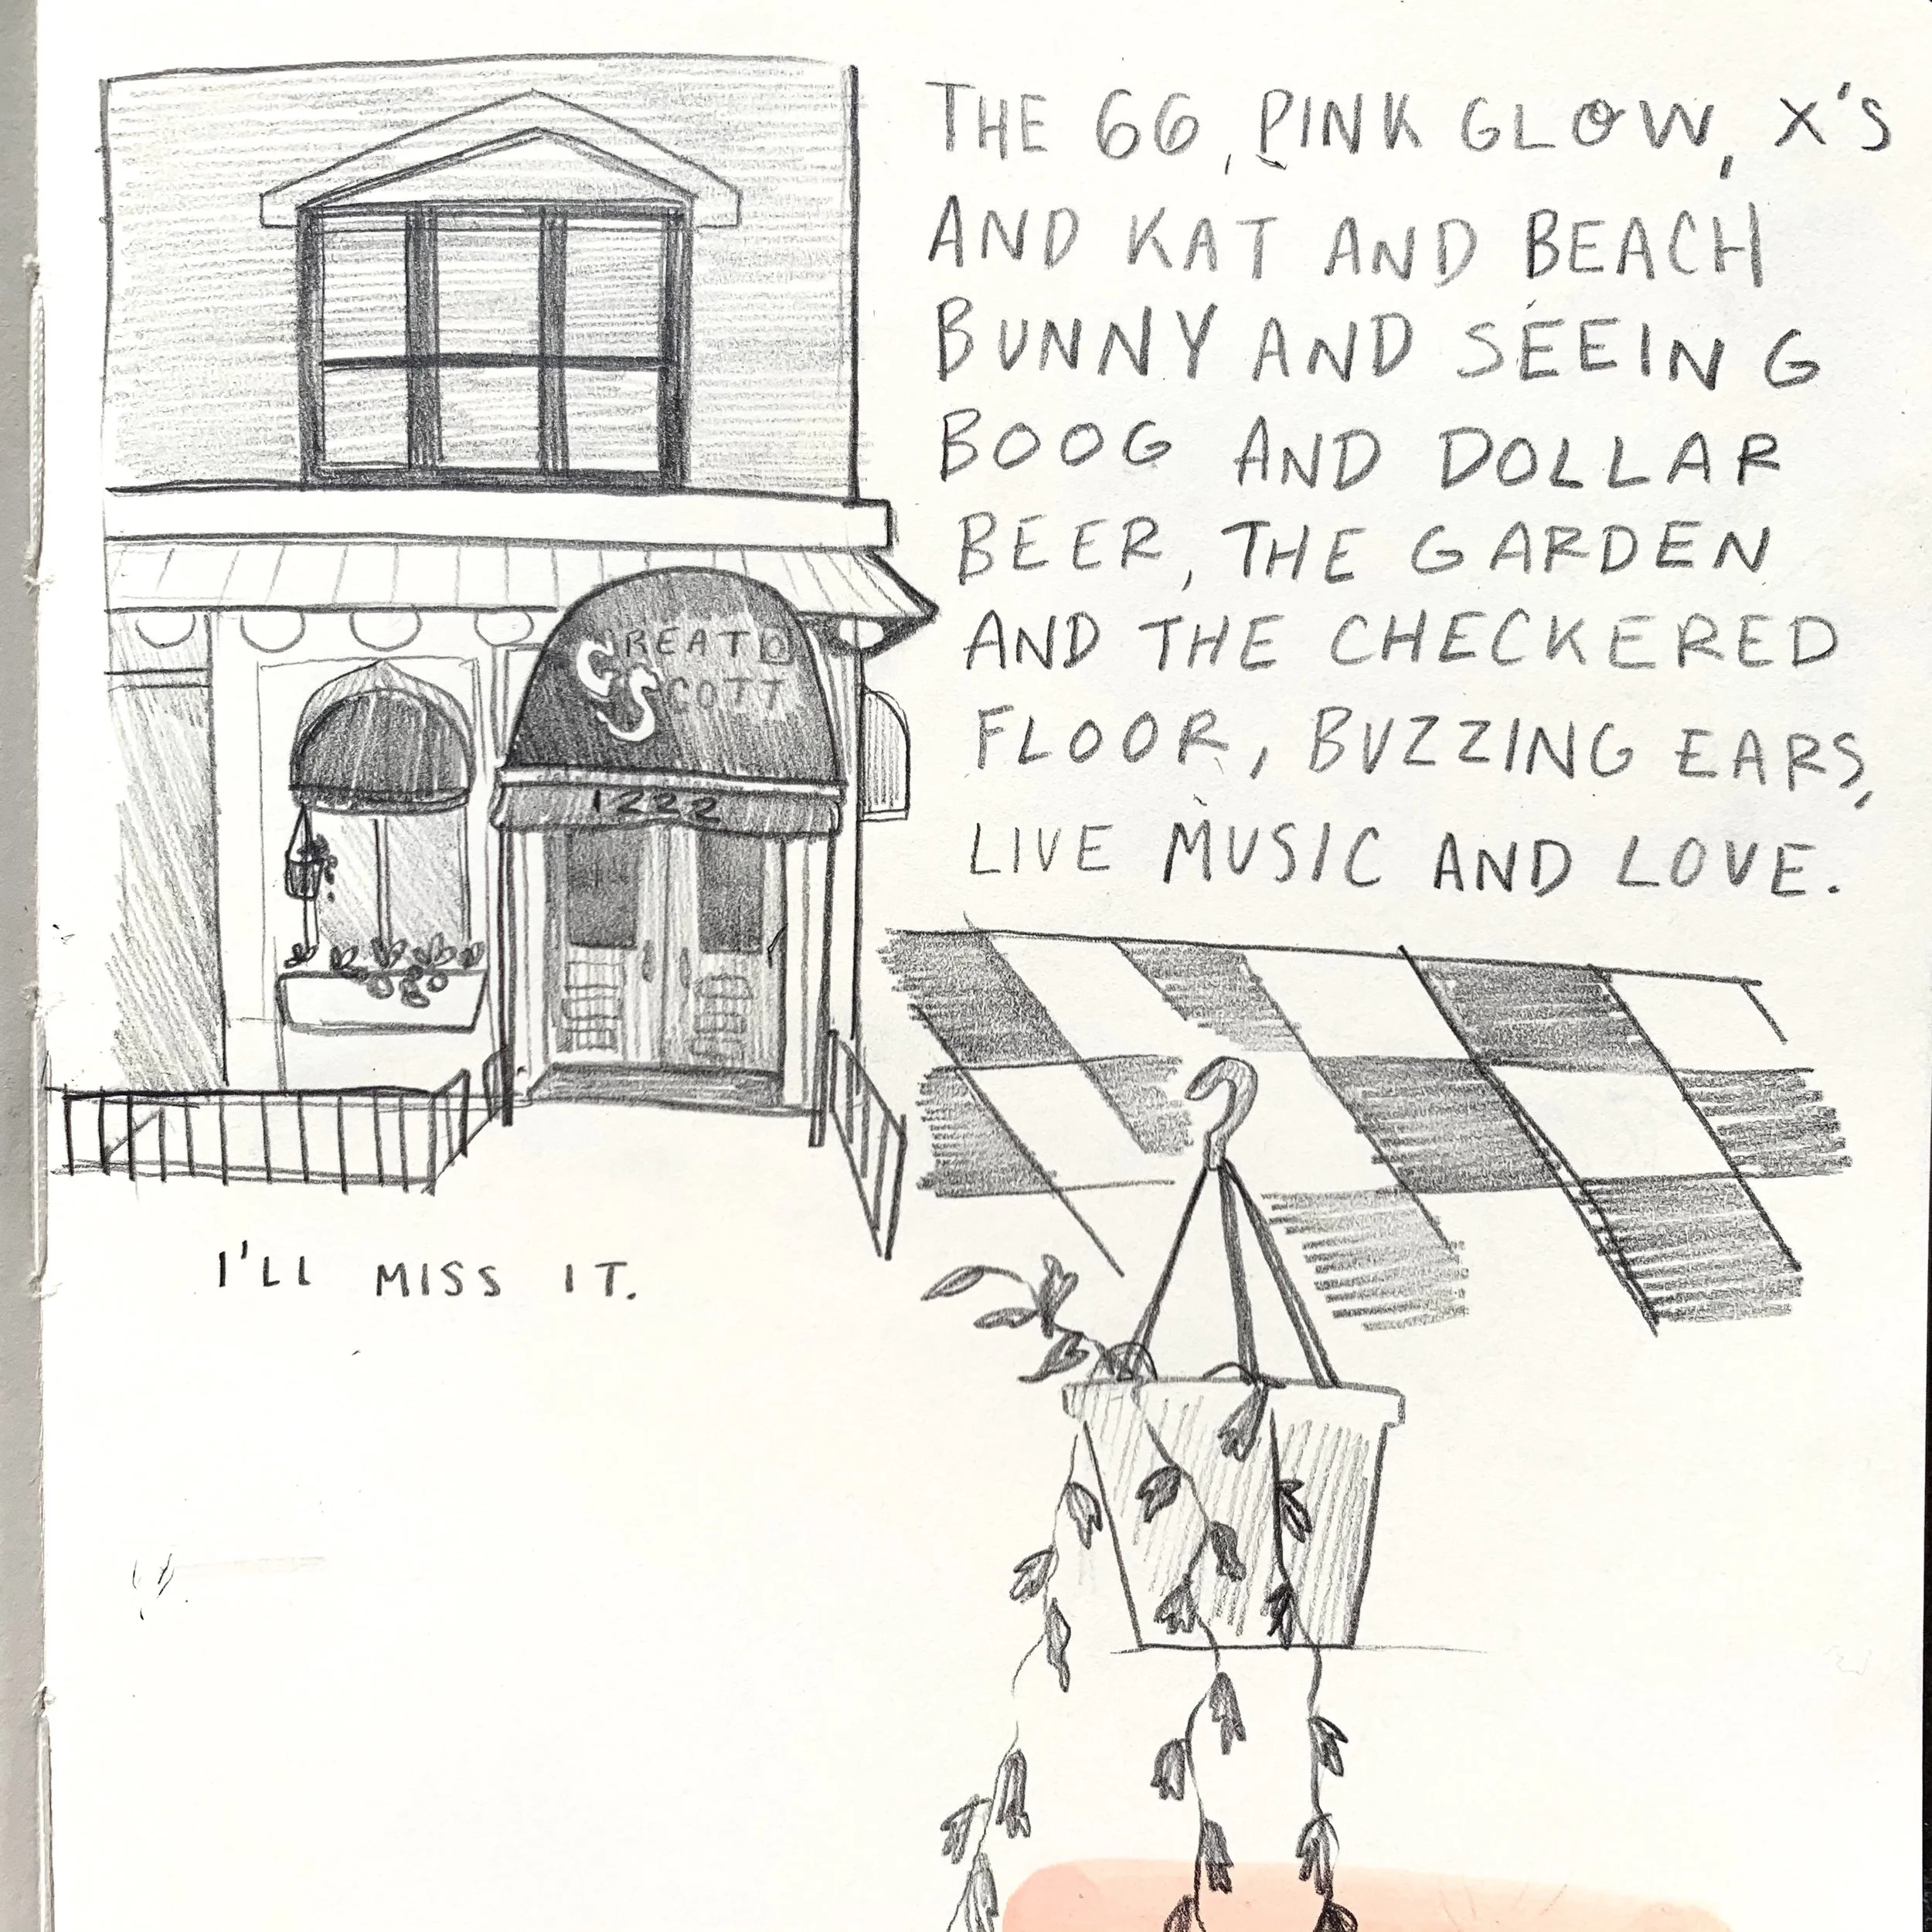 GREAT
SCOTT
1222
THE 66, PINK GLOW, X'S
AND KAT AND BEACH
BUNNY AND SEEING
BOOG AND DOLLAR
BEER, THE GARDEN
AND THE CHECKERED
FLOOR, BUZZING EARS,
LIVE MUSIC AND LOVE.
I'LL MISS IT.